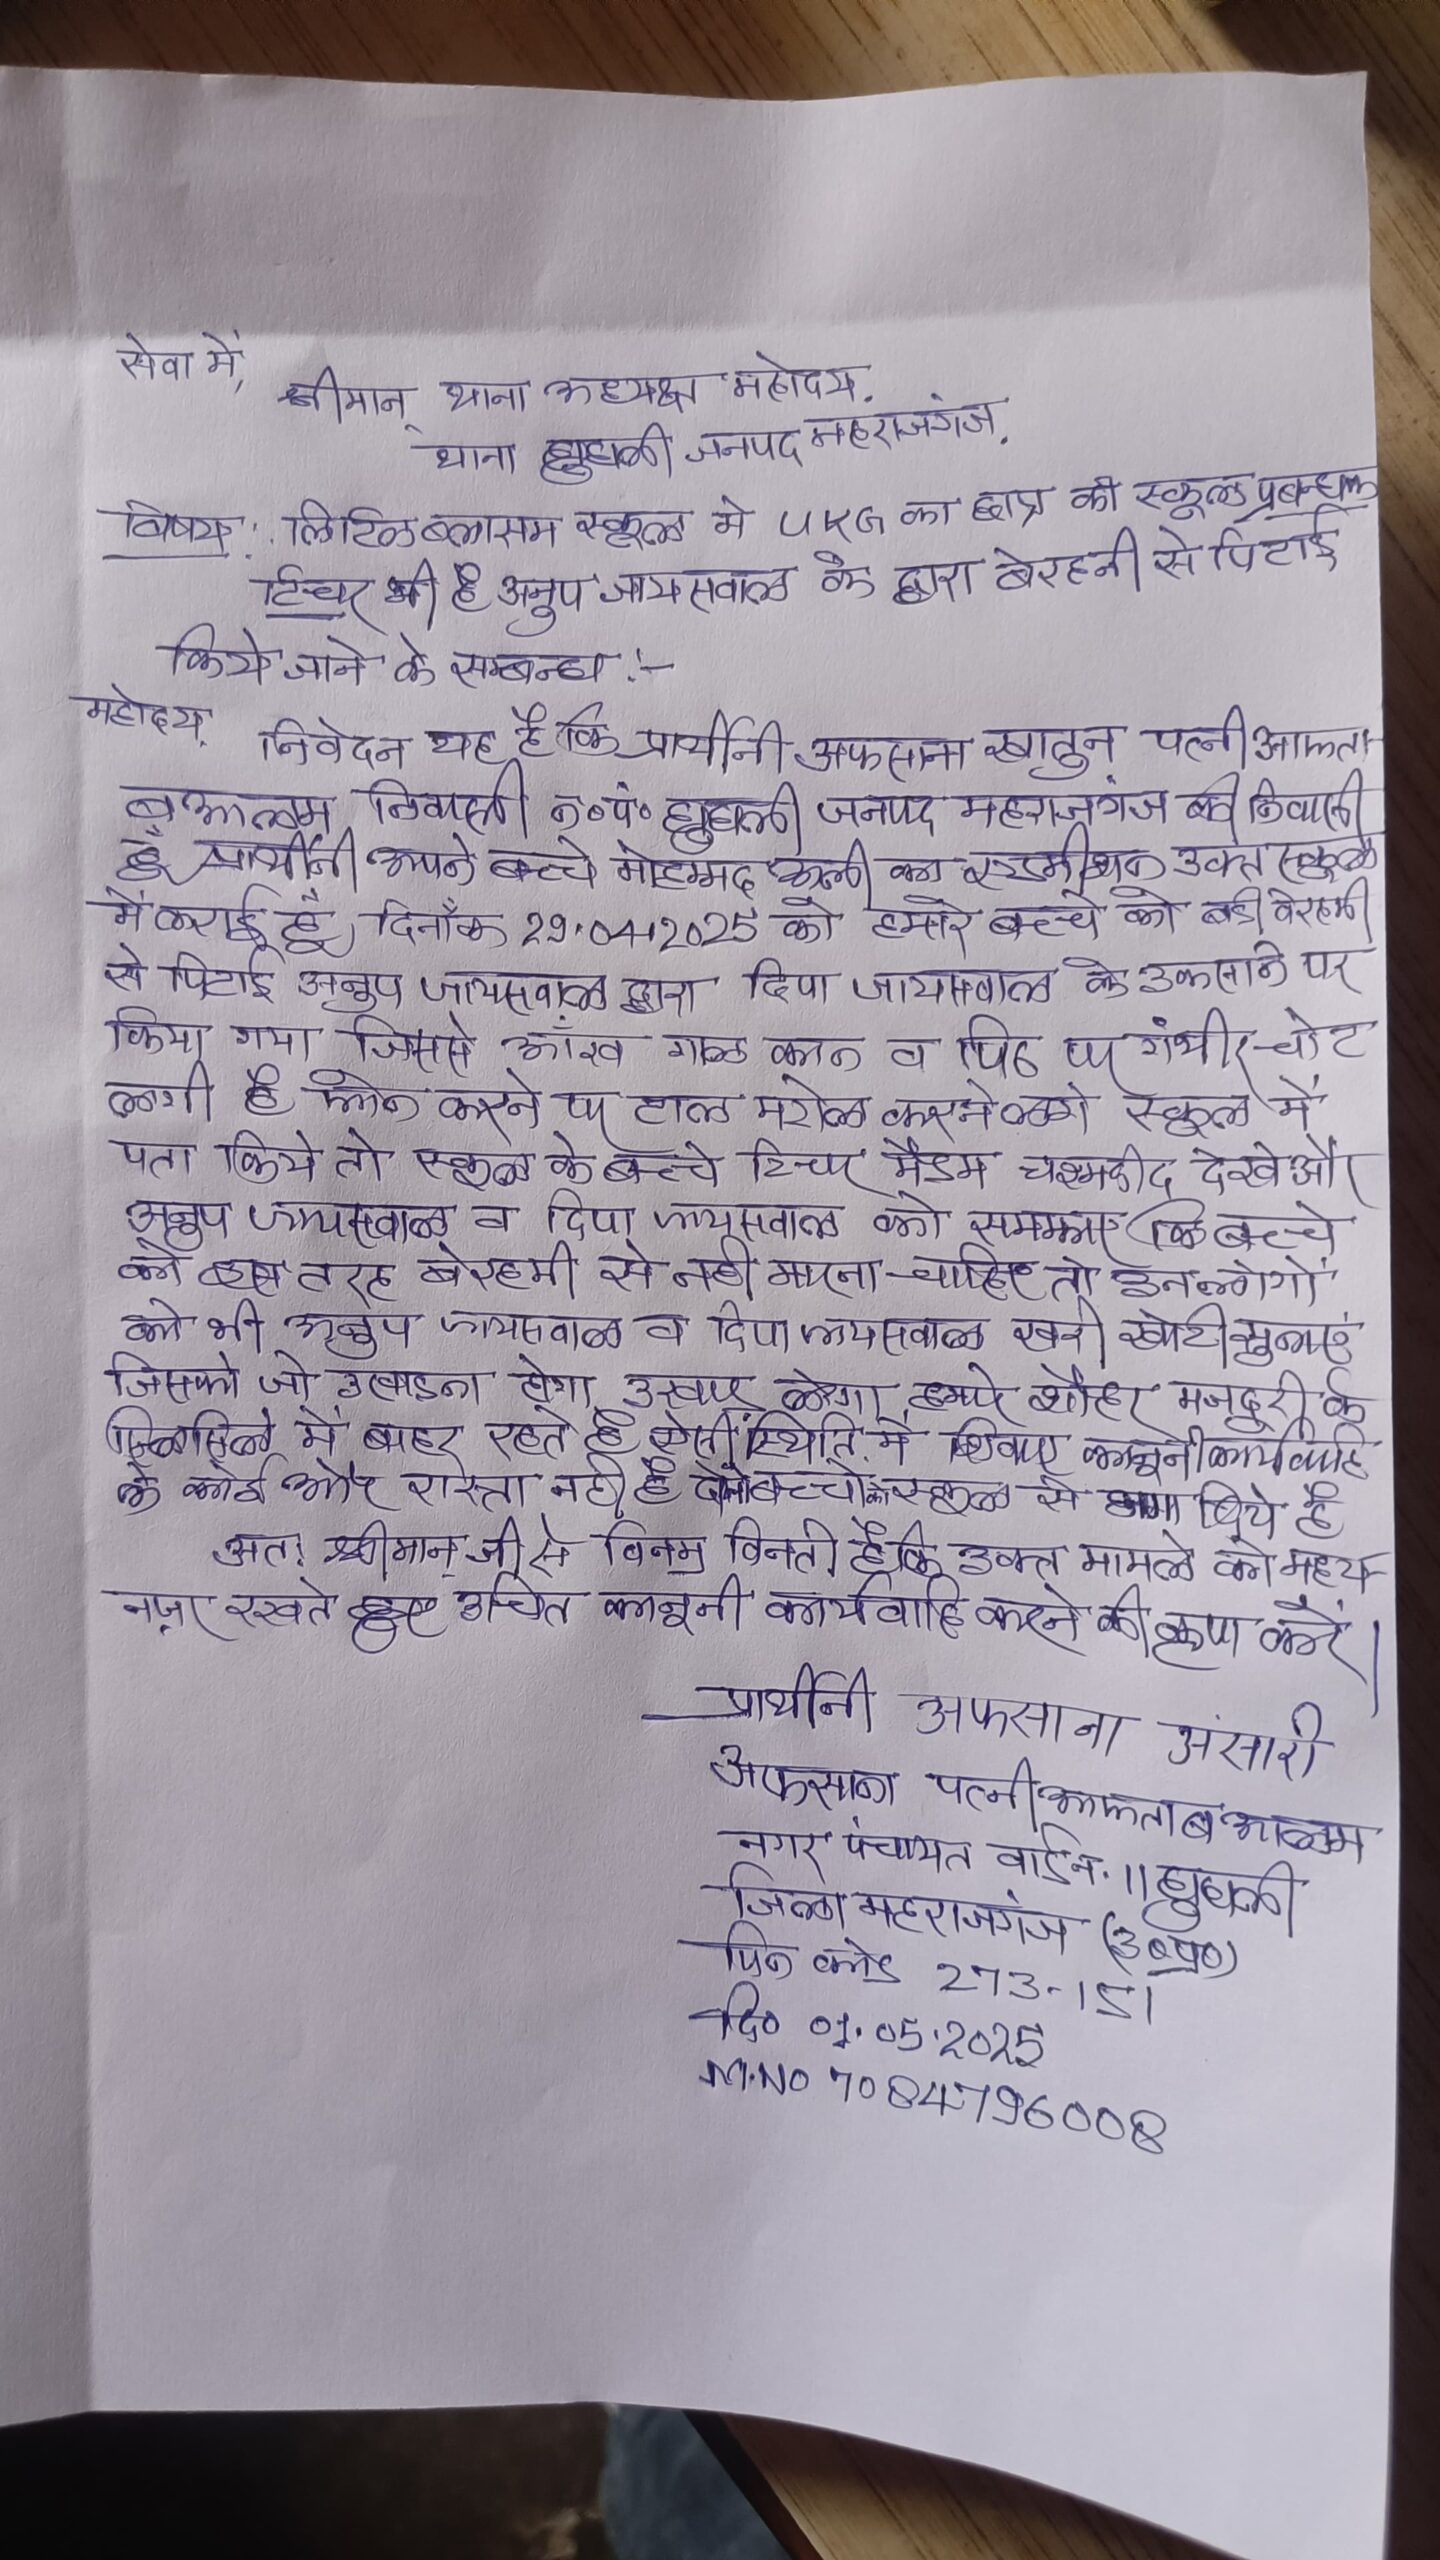 सेवा में,
श्रीमान् थाना अध्यक्ष महोदय.
थाना घुघली जनपद महराजगंज.
विषय:. लिटिल ब्लासम स्कूल मे UKG का छात्र को स्कूल प्रबन्धक
टिचर भी है अनुप जायसवाल के द्वारा बेरहमी से पिटाई
किये जाने के सम्बन्ध :-
महोदय,
निवेदन यह है कि प्रार्थीनी अफसाना खातुन पत्नी आफता-
ब आलम निवासी न०पं० घुघली जनपद महराजगंज की निवासी
हूँ प्रार्थीनी अपने बच्चे मोहम्मद अली का एडमीशन उक्त स्कूल
में कराई हूँ, दिनाँक 29.04.2025 को हमारे बच्चे को बडी बेरहमी
से पिटाई अनुप जायसवाल द्वारा दिपा जायसवाल के उकसाने पर
किया गया जिससे आँख गाल कान व पिठ पर गंभीर चोट
लगी है फोन करने पर टाल मटोल करने लगे स्कूल में
पता किये तो स्कूल के बच्चे टिचर मैडम चश्मदीद देखे और
अनुप जायसवाल व दिपा जायसवाल को समझाए कि बच्चे
को इस तरह बेरहमी से नही मारना चाहिए तो इन लोगों
को भी अनुप जायसवाल व दिपा जायसवाल खरी खोटी सुनाए
जिसको जो उखाडना होगा उखाड़ लेगा हमारे शौहर मजदुरी के
सिलसिले में बाहर रहते है ऐसी स्थिति में शिवाए कानूनी कार्यवाहि
के कोई और रास्ता नही है दोनो बच्चो को स्कूल से भगा दिये है
अतः श्रीमान् जी से विनम्र विनती है कि उक्त मामले को मद्दय-
नज़र रखते हुए उचित कानूनी कार्यवाहि करने की कृपा करें।
प्रार्थीनी अफसाना अंसारी
अफसाना पत्नी आफताब आलम
नगर पंचायत वार्ड न. 11 घुघली
जिला महराजगंज (उ०प्र०)
पिन कोड 273-151
दि० 01.05.2025
M.NO 7084796008